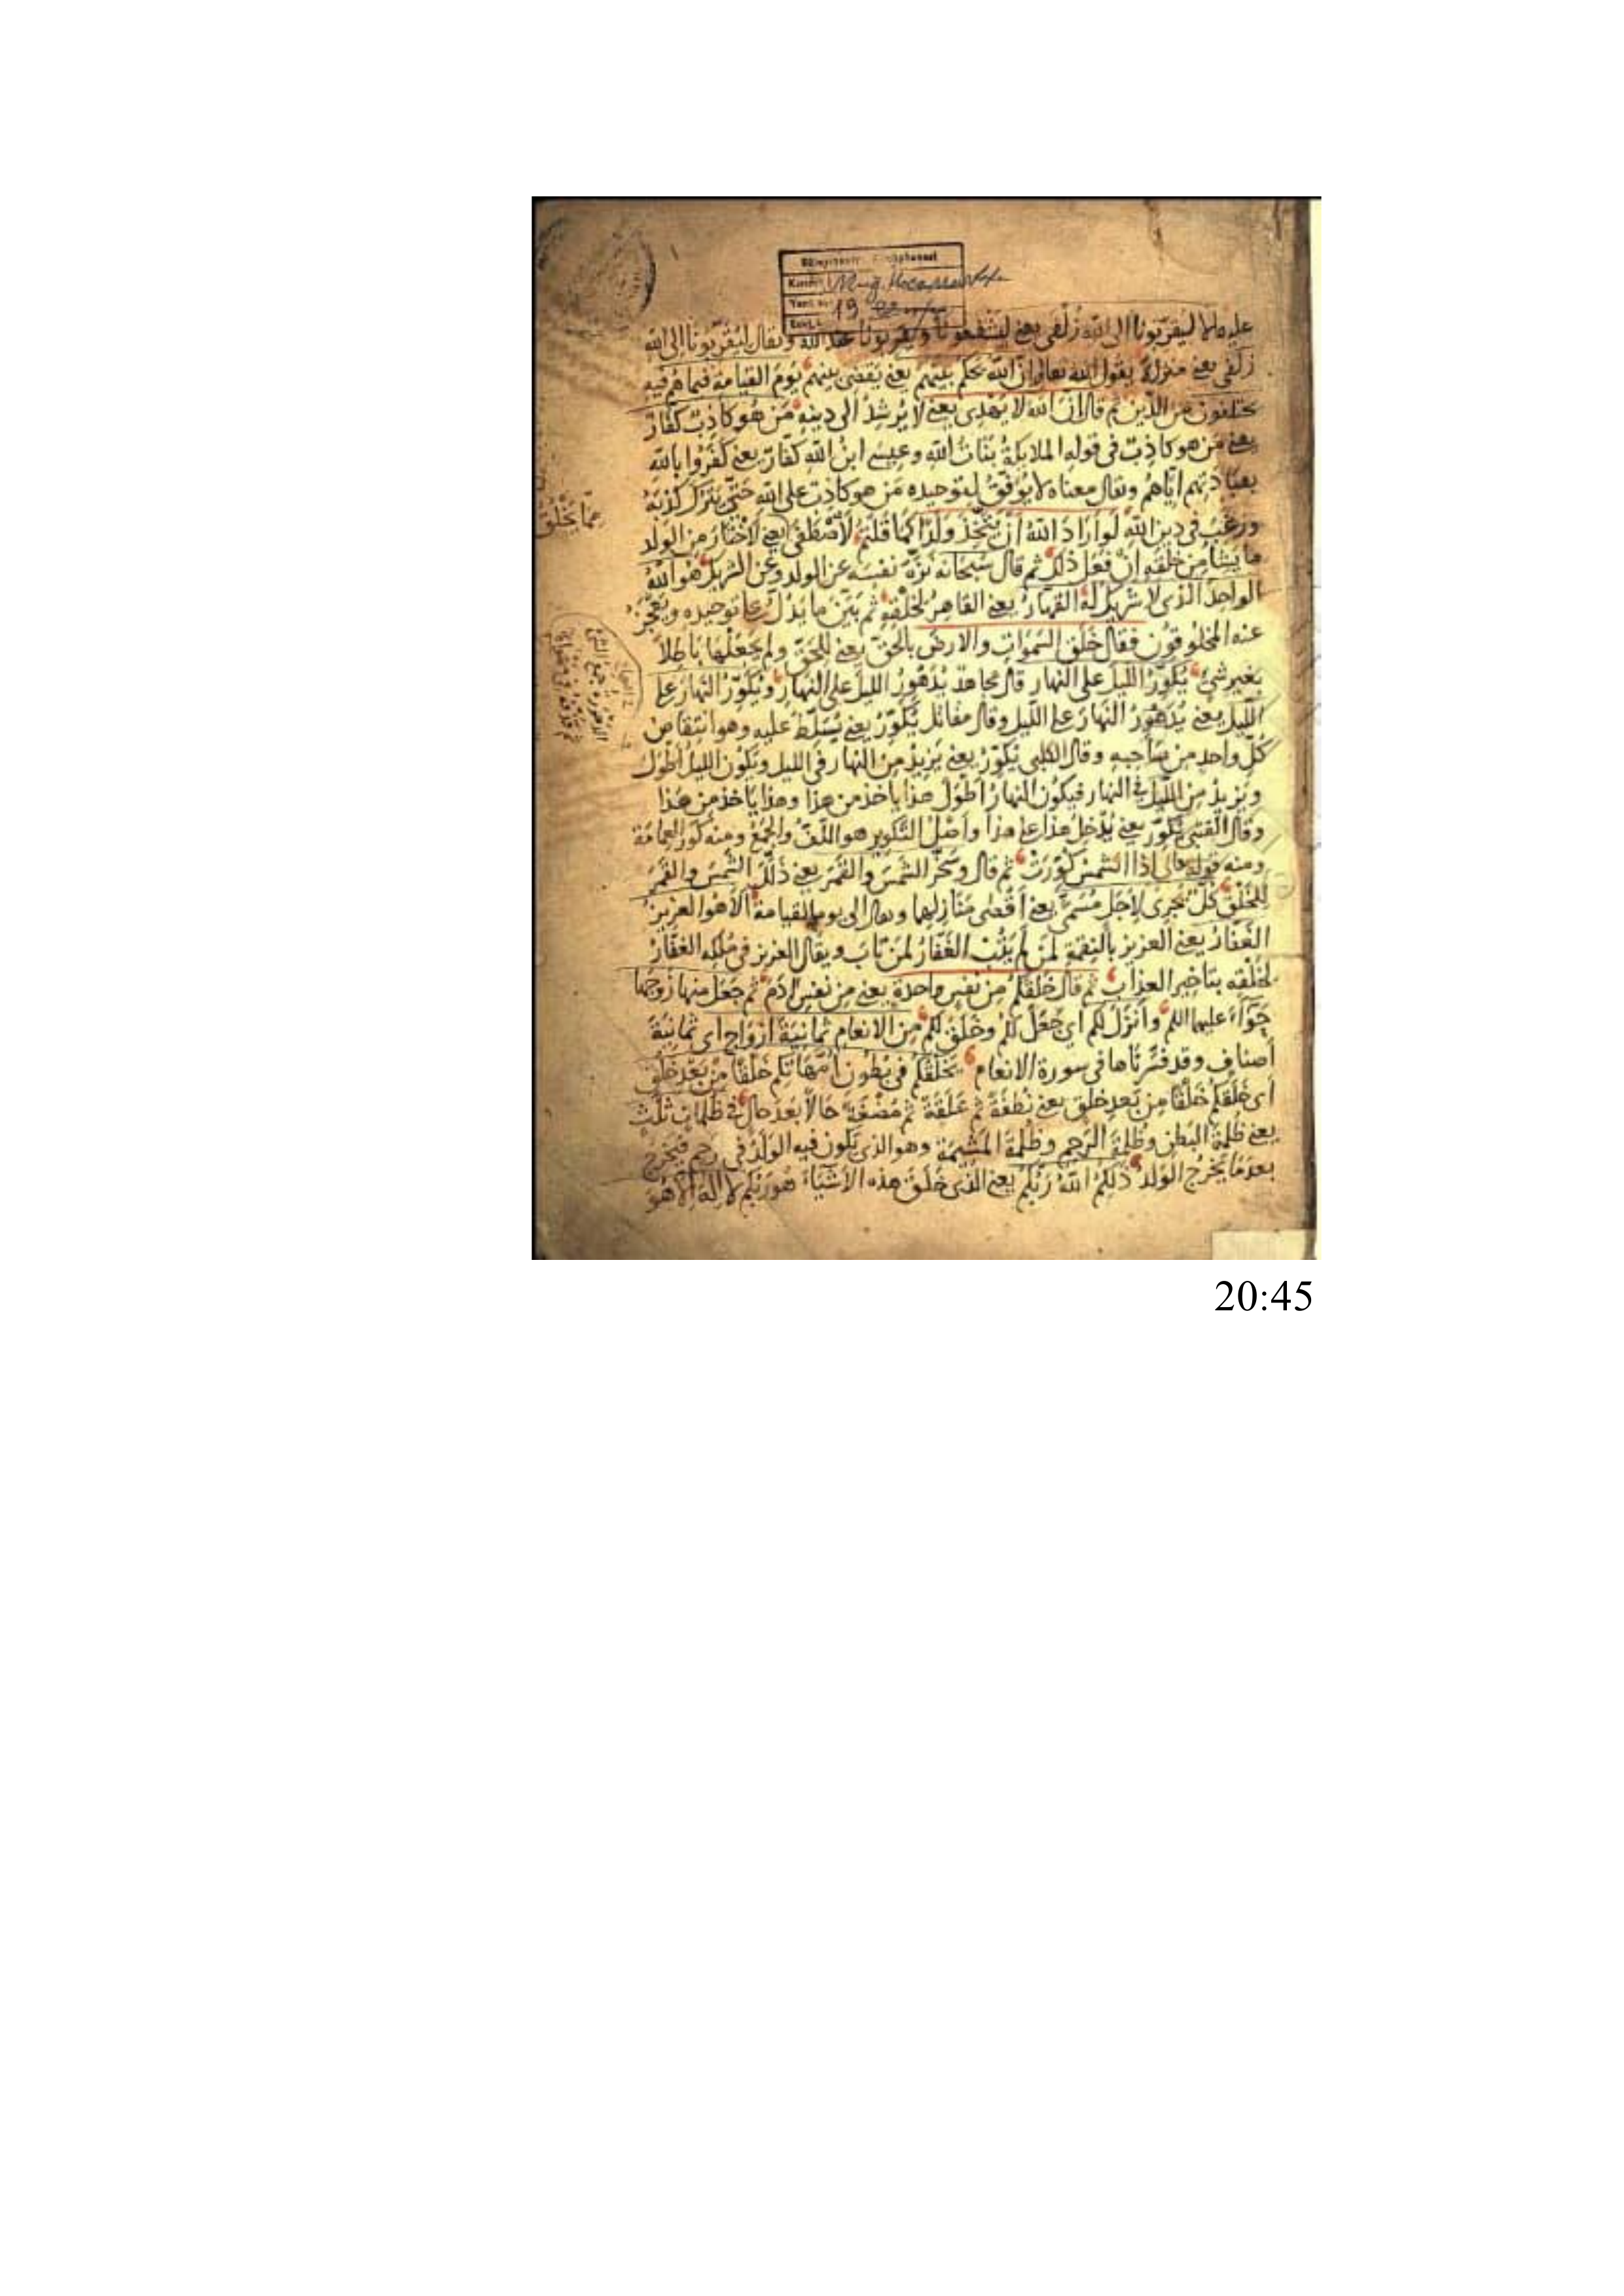 ليقربونا الى الله زلفى يعنى ليشفعونا ويقربونا عند الله ويقال ليقربونا الى الله
زلفى يعنى منزلة يقول الله تعالى ان الله يحكم بينهم يعنى يقضى بينهم يوم القيامة فيما هم فيه
يختلفون من الدين ثم قال ان الله لا يهدى يعنى لا يرشد الى دينه من هو كاذب كفار
يعنى من هو كاذب فى قوله الملايكة بنات الله وعيسى ابن الله كفار يعنى كفروا بالله
بعبادتهم اياهم ويقال معناه لا يوفق لتوحيده من هو كاذب على الله حتى يترك كذبه
ويرغب فى دين الله لو اراد الله ان يتخذ ولدا كما قلتم لاصطفى يعنى لاختار من الولد
مما يخلق
ما يشا من خلقه ان فعل ذلك ثم قال سبحانه نزه نفسه عن الولد وعن الشريك هو الله
الواحد الذى لا شريك له القهار يعنى القاهر لخلقه ثم بين ما يدل على توحيده ويعجز
عنه المخلوقون فقال خلق السموات والارض بالحق يعنى للحق ولم يجعلها باطلا
بغير شئ يكور الليل على النهار قال مجاهد يدهور الليل على النهار ويكور النهار على
الليل يعنى يدهور النهار على الليل وقال مقاتل يكور يعنى يسلط عليه وهو انتقاص
كل واحد من صاحبه وقال الكلبى يكور يعنى يزيد من النهار فى الليل ويكون الليل اطول
ويزيد من الليل فى النهار فيكون النهار اطول هذا ياخذ من هذا وهذا ياخذ من هذا
وقال القتبى يكور يعنى يدخل هذا على هذا واصل التكوير هو اللف والجمع ومنه كور العمامة
ومنه قوله تعالى اذا الشمس كورت ثم قال وسخر الشمس والقمر يعنى ذلل الشمس والقمر
للخلق كل يجرى لاجل مسمى يعنى اقصى منازلها ويقال الى يوم القيامة الا هو العزيز
الغفار يعنى العزيز بالنقمة لمن لم يتب الغفار لمن تاب ويقال العزيز فى ملكه الغفار
لخلقه بتاخير العذاب ثم قال خلقكم من نفس واحدة يعنى من نفس ادم ثم جعل منها زوجها
حوآء عليهما السلم وانزل لكم اى جعل لكم وخلق لكم من الانعام ثمانية ازواج اى ثمانية
اصناف وقد فسرناها فى سورة الانعام يخلقكم فى بطون امهاتكم خلقا من بعد خلق
اى خلقكم خلقا من بعد خلق يعنى نطفة ثم علقة ثم مضغة حالا بعد حال فى ظلمات ثلث
يعنى ظلمة البطن وظلمة الرحم وظلمة المشيمة وهو الذى يكون فيه الولد فى رحم فيخرج
بعد ما يخرج الولد ذلكم الله ربكم يعنى الذى خلق هذه الاشياء هو ربكم لا اله الا هو
20:45